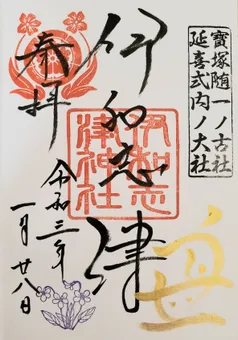 寳塚随一ノ古社
延喜式内ノ大社
伊和志津
伊和志
津神社
奉拝
令和三年
一月廿八日